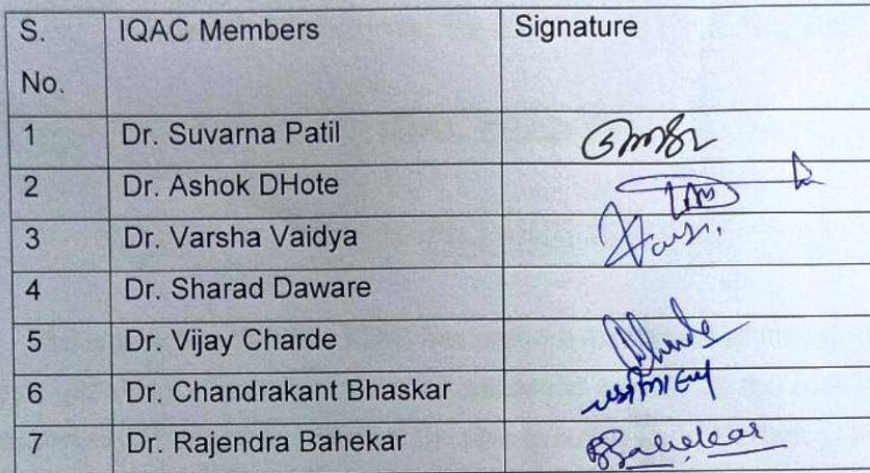 S. No. IQAC Members Signature
1 Dr. Suvarna Patil
2 Dr. Ashok DHote
3 Dr. Varsha Vaidya
4 Dr. Sharad Daware
5 Dr. Vijay Charde
6 Dr. Chandrakant Bhaskar
7 Dr. Rajendra Bahekar Bahekar